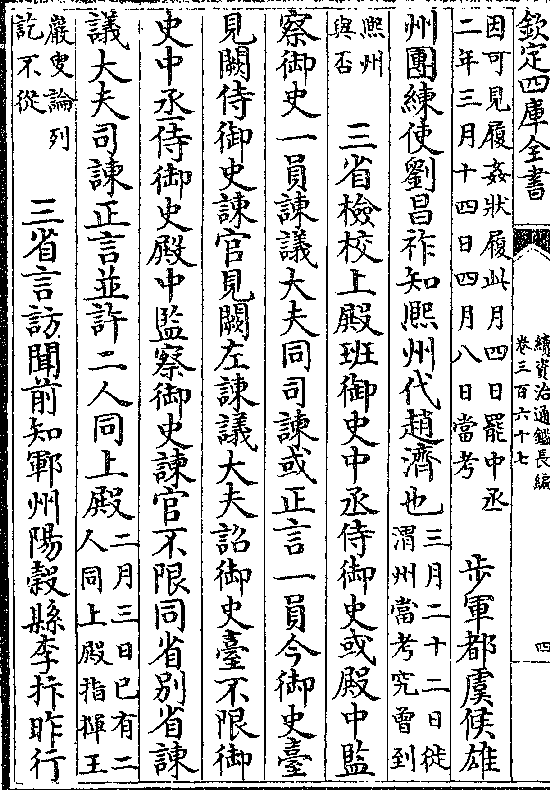 欽定四庫全書
續資治通鑑長編
卷三百六十七
四
因可見履姦狀履此月四日罷中丞
二年三月十四日四月八日當考
步軍都虞候雄
州團練使劉昌祚知熙州代趙濟也
三月二十二日徙
渭州當考究曾到
熙州
與否
三省檢校上殿班御史中丞侍御史或殿中監
察御史一員諫議大夫同司諫或正言一員今御史臺
見闕侍御史諫官見闕左諫議大夫詔御史臺不限御
史中丞侍御史殿中監察御史諫官不限同省别省諫
議大夫司諫正言並許二人同上殿
二月三日已有二
人同上殿指揮王
巖叟論列
訖不從
三省言訪聞前知鄆州陽穀縣李抃昨行